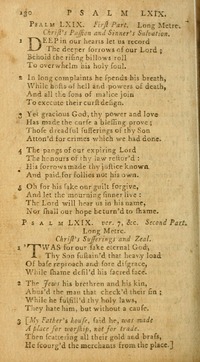 180 PSALM LXIX.
PSALM LXIX. First Part. Long Metre.
Christ's Passion and Sinner's Salvation.
1 DEEP in our hearts let us record
The deeper sorrows of our Lord;
Behold the rising billows roll
To overwhelm his holy soul.
2 In long complaints he spends his breath,
While hosts of hell and powers of death,
And all the sons of malice join
To execute their curst design.
3 Yet gracious God, thy power and love
Has made the curse a blessing prove;
Those dreadful sufferings of thy Son
Aton'd for crimes which we had done.
4 The pangs of our expiring Lord
The honours of thy law restor'd:
His sorrows made thy justice known
And paid for follies not his own.
5 Oh for his sake our guilt forgive,
And let the mourning sinner live:
The Lord will hear us in his name,
Nor shall our hope be turn'd to shame.
PSALM LXIX. ver. 7, &c. Second Part.
Long Metre.
Christ's Sufferings and Zeal.
1 'TWAS for our sake eternal God,
Thy Son sustain'd that heavy load
Of base reproach and sore disgrace,
While shame defil'd his sacred face.
2 The Jews his brethren and his kin,
Abus'd the man that check'd their sin;
While he fulfill'd thy holy laws,
They hate him, but without a cause.
3 [My Father's house, said he, was made
A place for worship, not for trade.
Then scattering all their gold and brass,
He scourg'd the merchants from the place.]